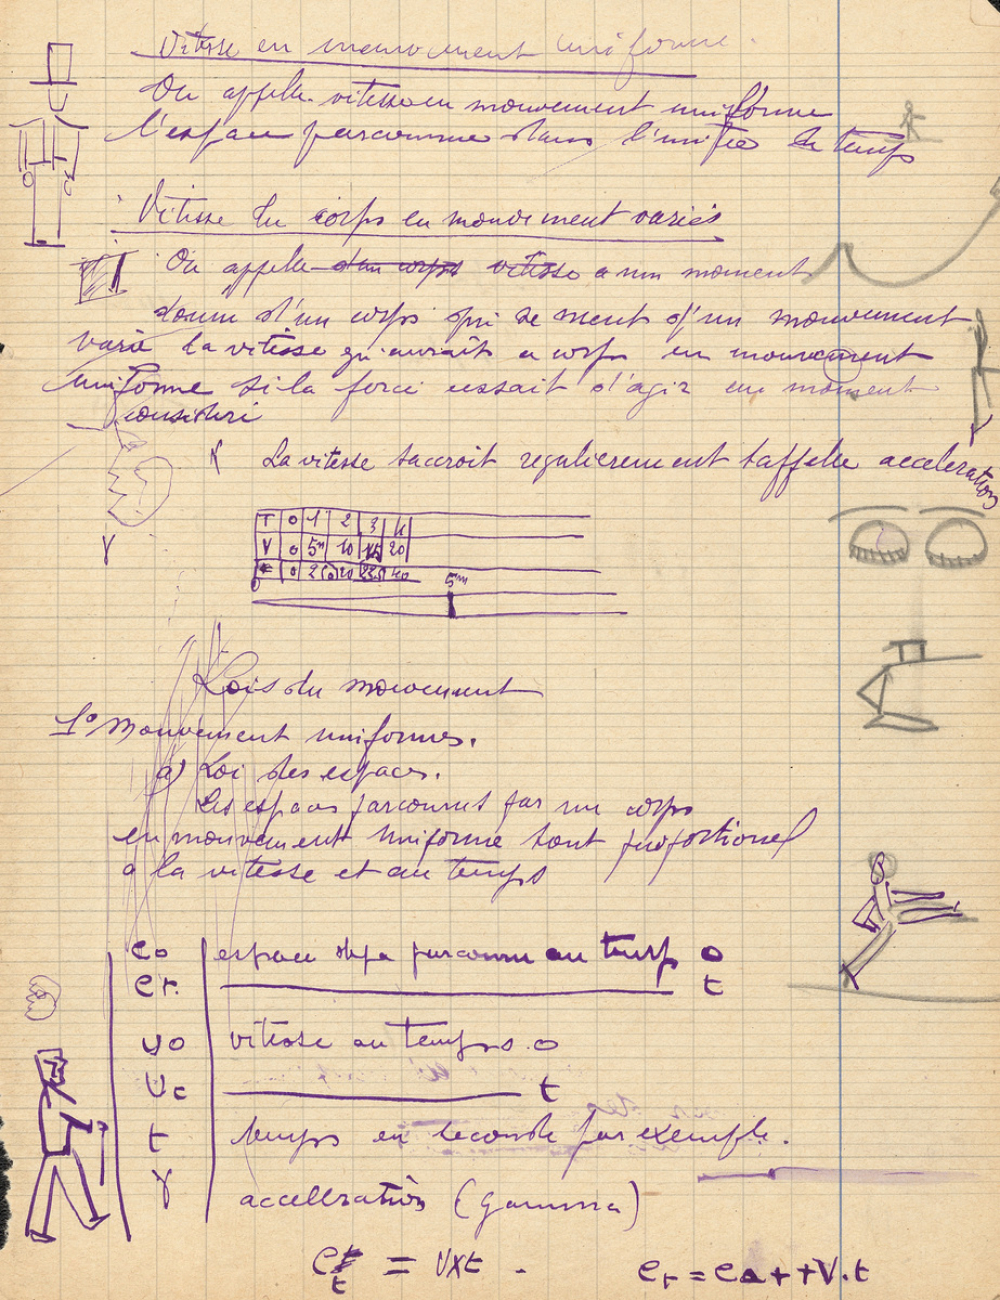 Vitesse en mouvement uniforme.
On appelle vitesse en mouvement uniforme
l'espace parcourue dans l'unitée de temps
Vitesse du corps en mouvement variés
On appelle d'un corps vitesse a un moment
donné d'un corps qui se meut d'un mouvement
varié la vitesse qu'aurait ce corps en mouvement
uniforme si la force cessait d'agir au moment
considéré
γ La vitesse saccroit regulierement sappelle acceleration
γ
T 0 1 2 3 4
V 0 5m 10 15 20
e 0 2 20 40
5m
Lois du mouvement
1° Mouvement uniformes.
a) Loi des espaces.
Les espaces parcourus par un corps
en mouvement uniforme sont proportionel
a la vitesse et au temps
eo espace deja parcouru au temps o
et ——— t
vo vitesse au temps o
vt ——— t
t temps en seconde par exemple.
γ accellration (gamma)
et = v×t.
et = eo + V.t